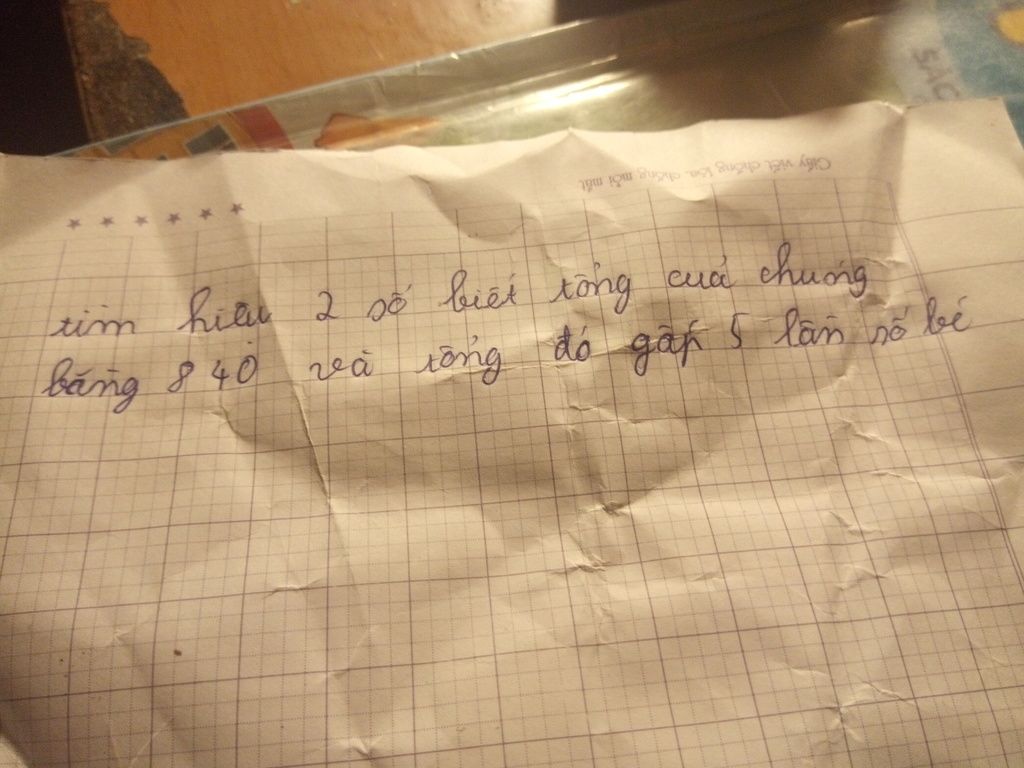 SÁC
Giấy viết chống lóa, chống mỏi mắt
tìm hiệu 2 số biết tổng cuả chúng
bằng 840 và tổng đó gấp 5 lần số bé